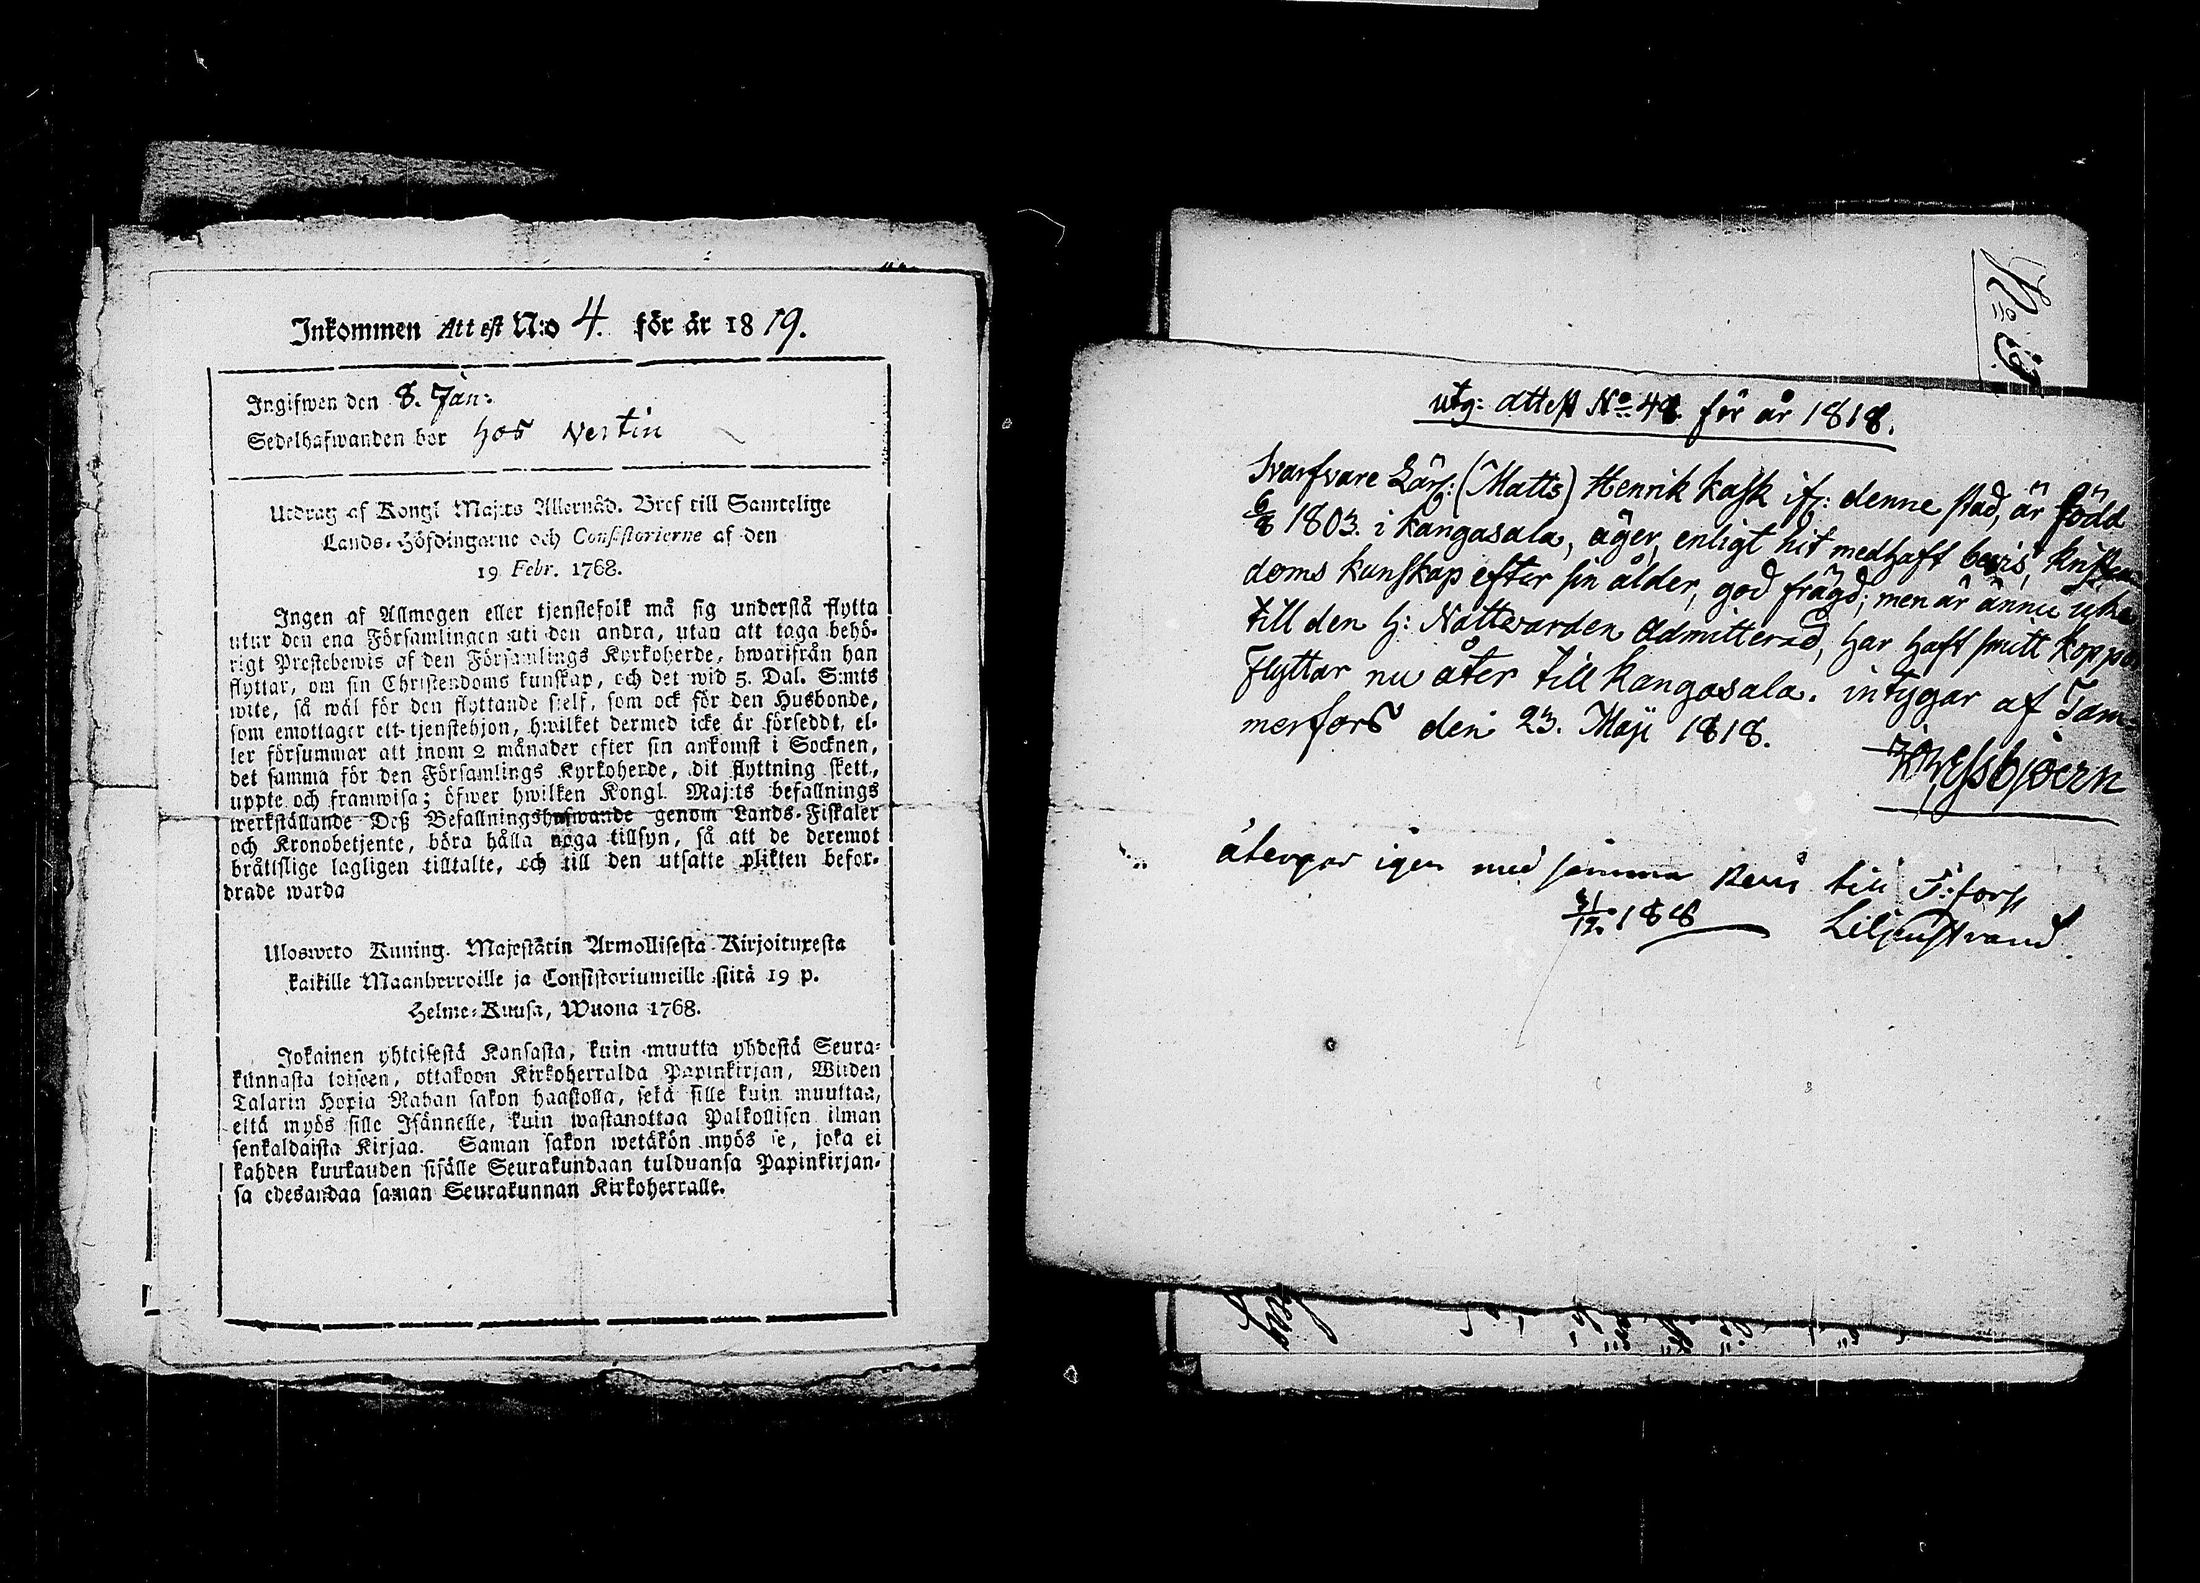 Inkommen Attest N:o 4. för år 1819.
Ingifwen den 8. Jan:
Sedelhafwanden bor hos Nertin
Utdrag af Kongl Maj:ts Allernåd. Bref till Samtelige
Lands-Höfdingarne och Consistorierne af den
19 Febr. 1768.
Ingen af Allmogen eller tjenstefolk må sig understå flytta
utur den ena Församlingen uti den andra, utan att taga behö-
rigt Prestebewis af den Församlings Kyrkoherde, hwarifrån han
flyttar, om sin Christendoms kunskap, och det wid 5. Dal. S:mts
wite, så wäl för den flyttande sjelf, som ock för den Husbonde,
som emottager ett tjenstehjon, hwilket dermed icke är försedd, el-
ler försummar att inom 2 månader efter sin ankomst i Socknen,
det samma för den Församlings Kyrkoherde, dit flyttning skett,
uppte och framwisa; öfwer hwilken Kongl. Maj:ts befallnings
werkställande Deß Befallningshafwande genom Lands-Fiskaler
och Kronobetjente, böra hålla noga tillsyn, så att de deremot
bråttslige lagligen tilltalte, och till den utsatte plikten befor-
drade warda
Ulosweto Kuning. Majestätin Armollisesta Kirjoituxesta
kaikille Maanherroille ja Consistoriumeille siitä 19 p.
Helme-Kuusa, Wuona 1768.
Jokainen yhteisestä Kansasta, kuin muutta yhdestä Seura-
kunnasta toiseen, ottakoon Kirkoherralda Papinkirjan, Wiiden
Talarin Hopia Rahan sakon haastolla, sekä sille kuin muuttaa,
että myös sille Isännelle, kuin wastanottaa Palkollisen ilman
senkaldaista Kirjaa. Saman sakon wetäkön myös se, joka ei
kahden kuukauden sisälle Seurakundaan tulduansa Papinkirjan-
sa edesandaa saman Seurakunnan Kirkoherralle.
utg: attest No 48. för år 1818.
Svarfvare Lärl: (Matts) Henrik Kask ifr: denne stad, är född
6/8 1803. i Kangasala, äger, enligt hit medhaft bevis, kristen-
doms kunskap efter sin ålder, god frägd; men är ännu icke
till den H: Nattvarden admitterad, har haft smitt koppor
Flyttar nu åter till Kangasala. intygar af Tam-
merfors den 23. Maji 1818.
återgår igen med samma bevis till T:fors
31/12 1818 Liljenstrand